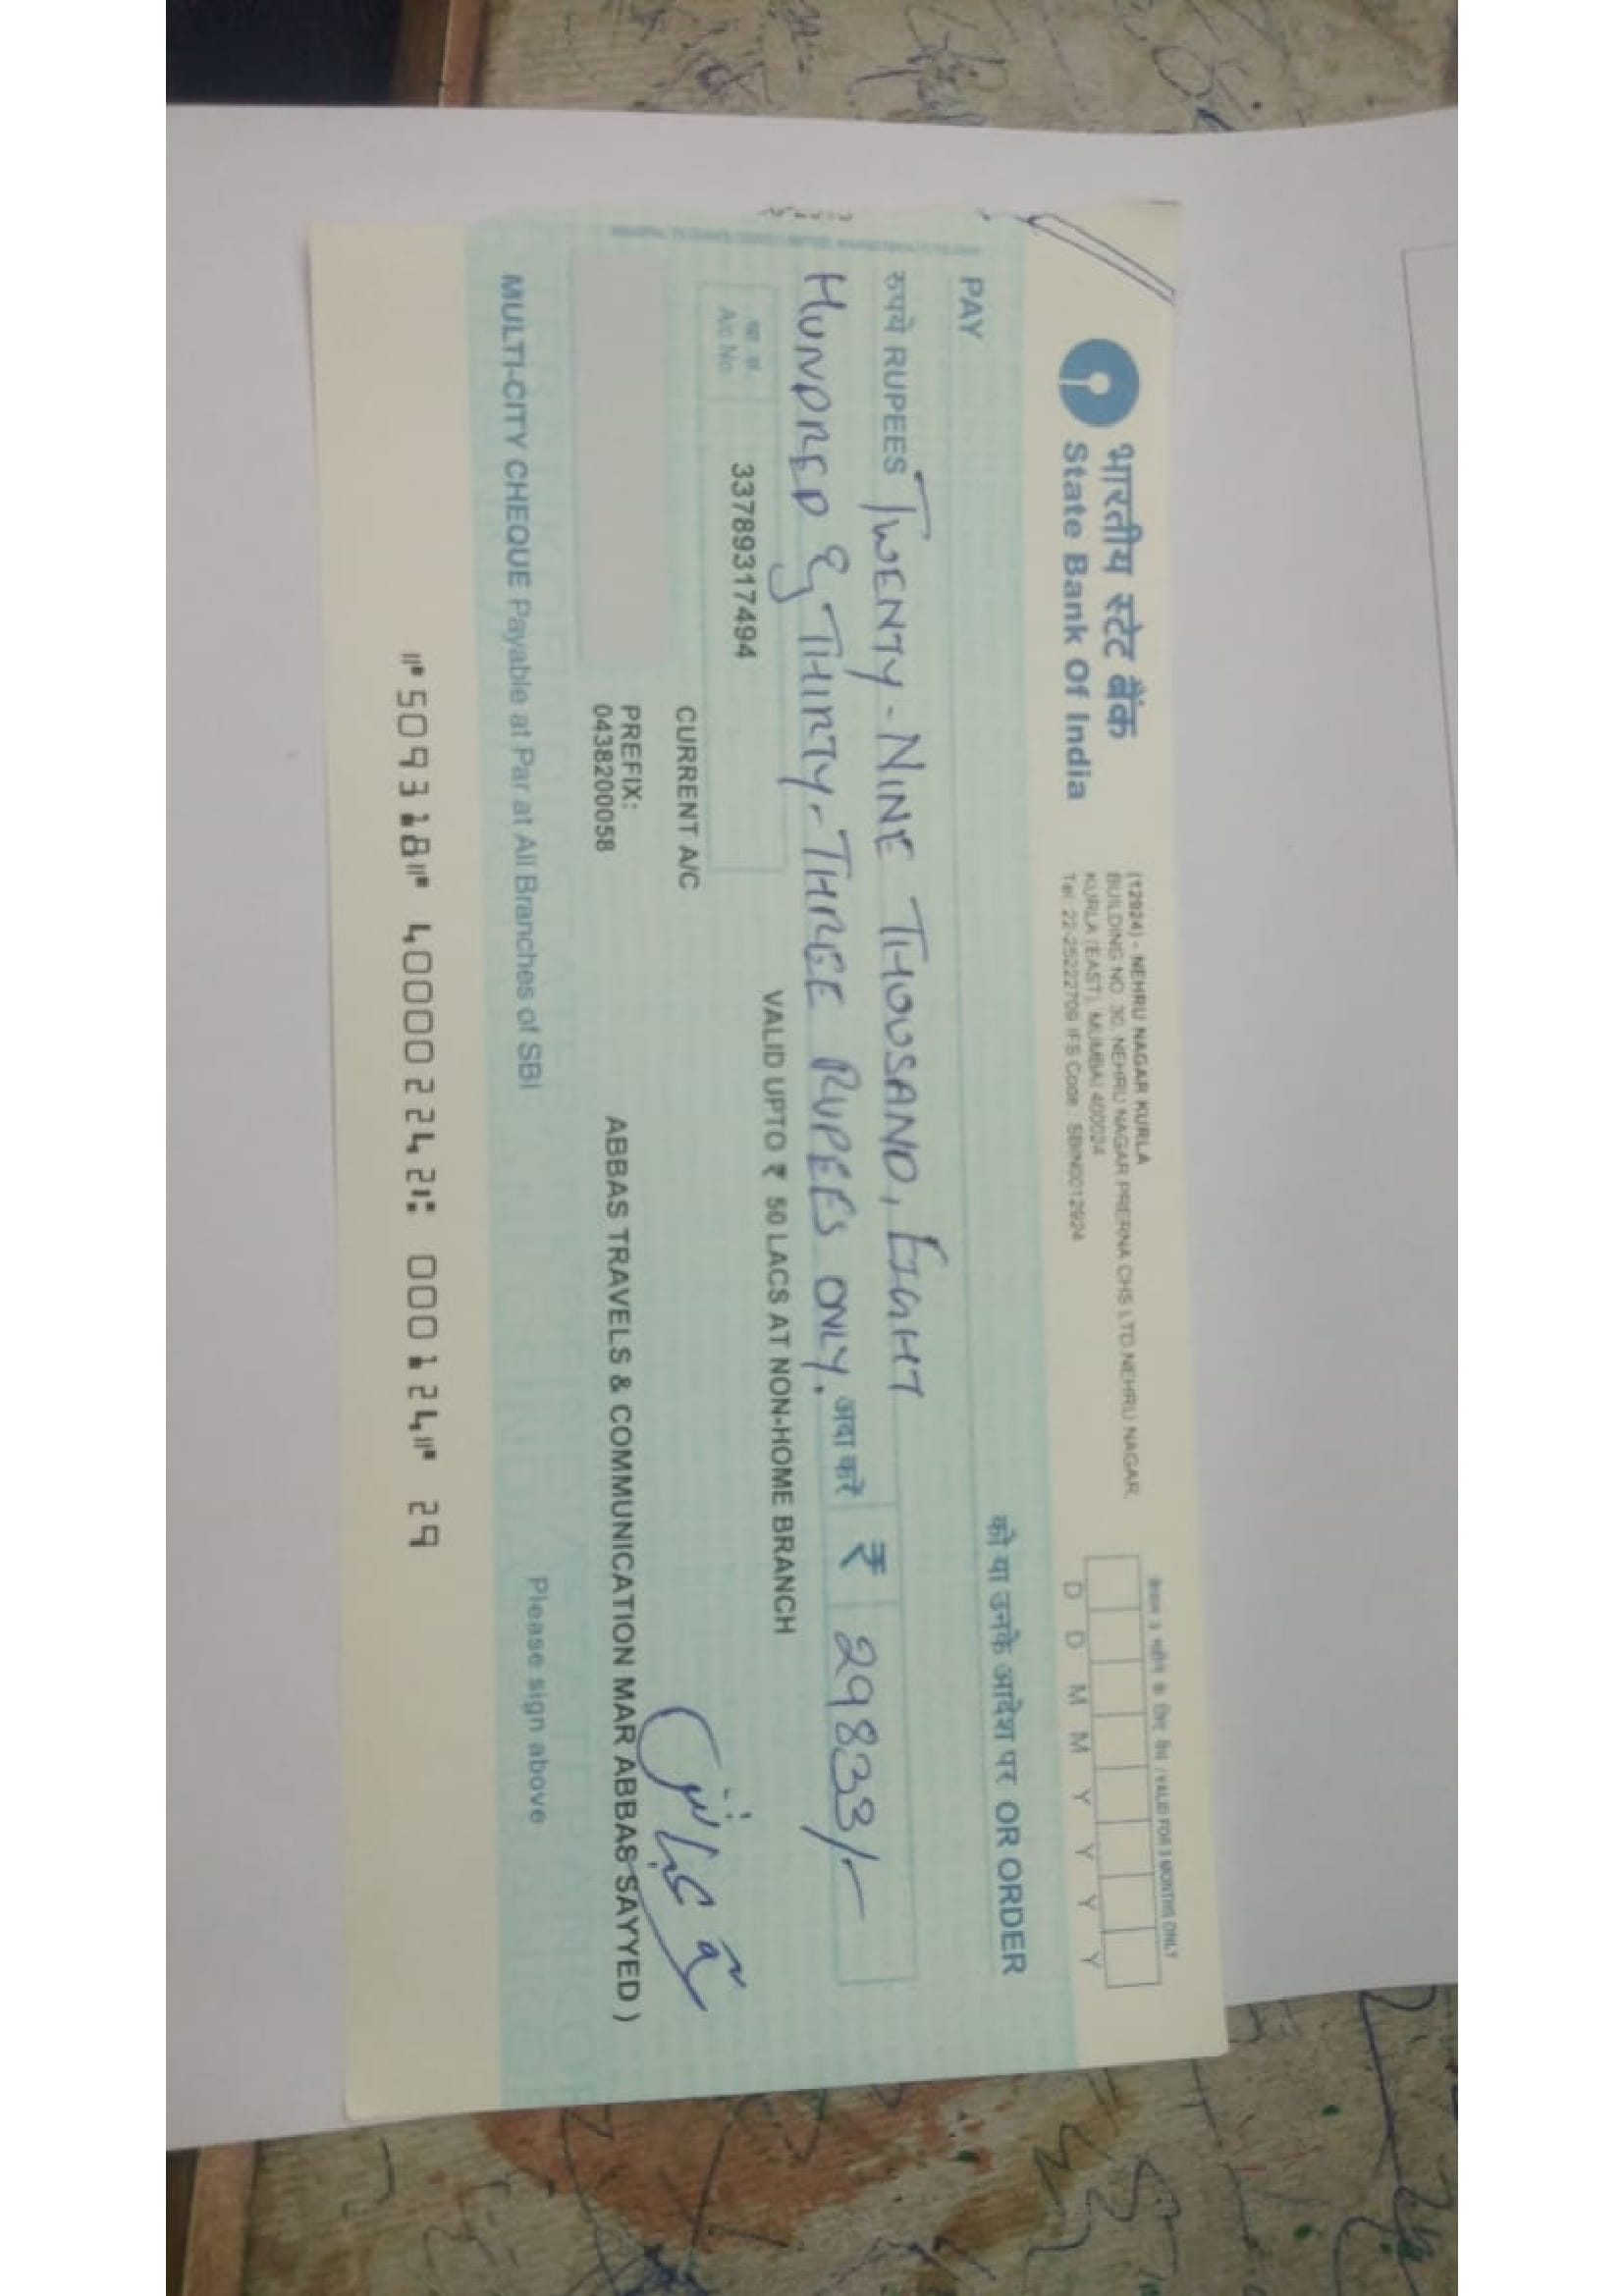 केवल 3 महीने के लिए वैध / VALID FOR 3 MONTHS ONLY
भारतीय स्टेट बैंक
State Bank Of India
(12924) - NEHRU NAGAR KURLA
BUILDING NO 30, NEHRU NAGAR PRERNA CHS LTD NEHRU NAGAR,
KURLA (EAST), MUMBAI 400024
Tel: 22-25222709 IFS Code : SBIN0012924
D D M M Y Y Y Y
PAY
को या उनके आदेश पर OR ORDER
रुपये RUPEES TWENTY-NINE THOUSAND, EIGHT
HUNDRED & THIRTY-THREE RUPEES ONLY. अदा करें ₹ 29833/-
खा. सं.
A/c No.
33789317494
VALID UPTO ₹ 50 LACS AT NON-HOME BRANCH
CURRENT A/C
PREFIX:
0438200058
ABBAS TRAVELS & COMMUNICATION MAR ABBAS SAYYED )
MULTI-CITY CHEQUE Payable at Par at All Branches of SBI
Please sign above
⑈509318⑈ 400002242⑆ 000124⑈ 29